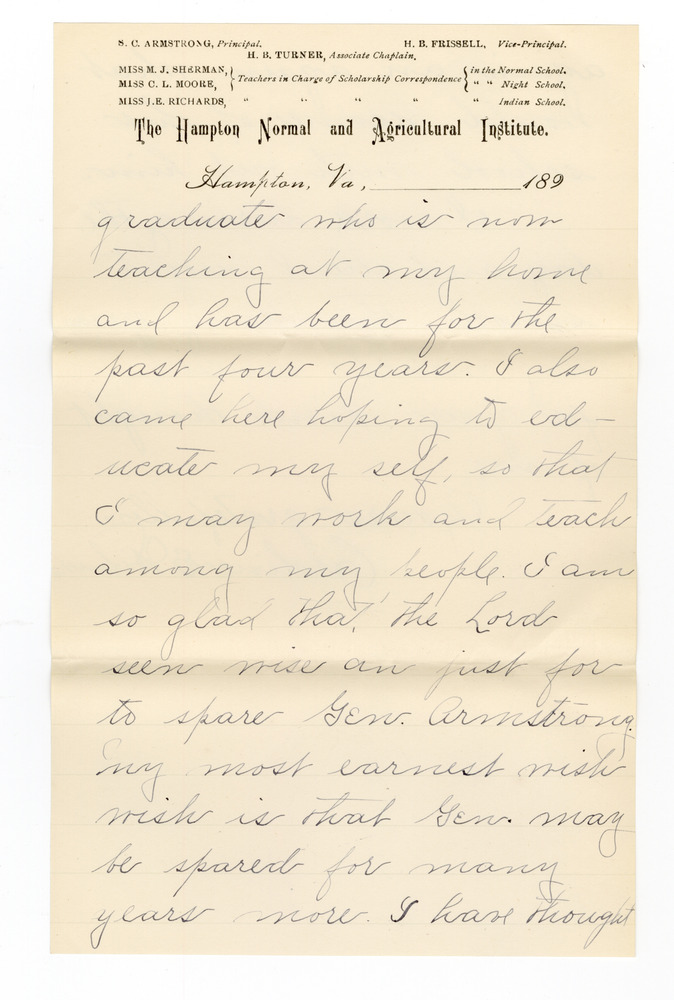 S. C. ARMSTRONG, Principal. H. B. FRISSELL, Vice-Principal.
H. B. TURNER, Associate Chaplain.
MISS M. J. SHERMAN, } Teachers in Charge of Scholarship Correspondence { in the Normal School.
MISS C. L. MOORE, " " Night School.
MISS J. E. RICHARDS, " " " " " Indian School.
The Hampton Normal and Agricultural Institute.
Hampton, Va., 189
graduate who is now
teaching at my home
and has been for the
past four years. I also
came here hoping to ed-
ucate my self, so that
I may work and teach
among my people. I am
so glad that the Lord
seen wise an just for
to spare Gen. Armstrong.
my most earnest wish
wish is that Gen. may
be spared for many
years more. I have thought